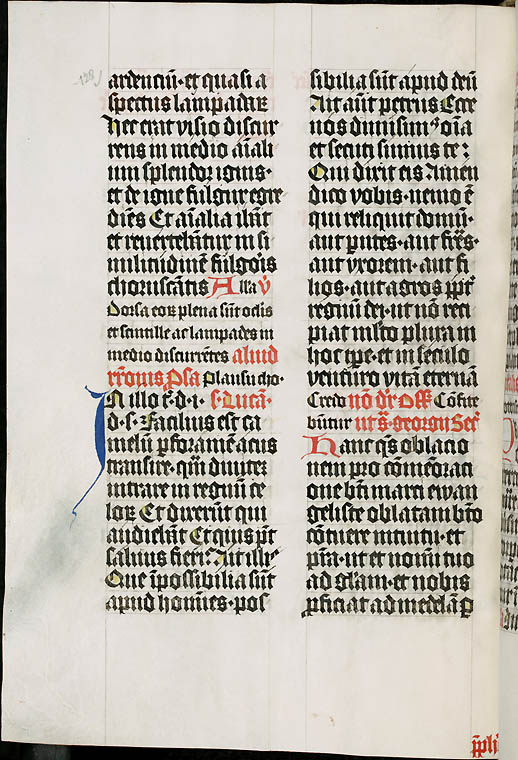 128
ardenciu͂·et quasi a
spectus lampadaꝝ
Hec erat visio discur
rens in medio aı͂ali
um splendor ignis·
et de igne fulgur egre
die͂s Et aı͂alia iba͂t
et reuerteba͂tur in si
militudine͂ fulgo͂is
choruscantis Alla v̾
Dorsa eoꝝ plena su͂t oc͂lis
et scintille ac lampades in
medio discurre͂tes aliud
Psa͂ Plausu cho·
In illo t͂·d·i· s·Luca͂·
d·s·Facilius est ca
melu͂ p forame͂ acus
transire·qua͂ diuite͂
intrare in regnu͂ ce
loꝝ Et dixeru͂t qui
audieba͂t Et quis p͂t
saluus fieri Ait illis
Que i͂possibilia su͂t
apud homi͂es·pos
sibilia su͂t apud deu͂
Ait au͂t petrus Ecce
nos dimisim⁹ o͂ia
et secuti sumus te:
Qui dixit eis Amen
dico vobis·nemo e͂
qui reliquit domu͂·
aut p͂ntes·aut fr͂es·
aut vxorem·aut fi
lios·aut agros ppt͂
regnu͂ dei·ut no͂ reci
piat m͂lto plura in
hoc tp͂e·et in seculo
venturo vita͂ eterna͂
Credo no͂ dr͂ Off͂ Co͂fite
bu͂ntur ut s͂·georgii Sec͂
Hanc q͂s oblacio
nem pro co͂me͂orati
one bt͂i marci ewan
geliste oblatam bt͂o
co͂tuere intuitu·et
pr͂a·ut et nomi͂ tuo
ad gl͂am·et nobis
p͂ficiat ad medela͂ p